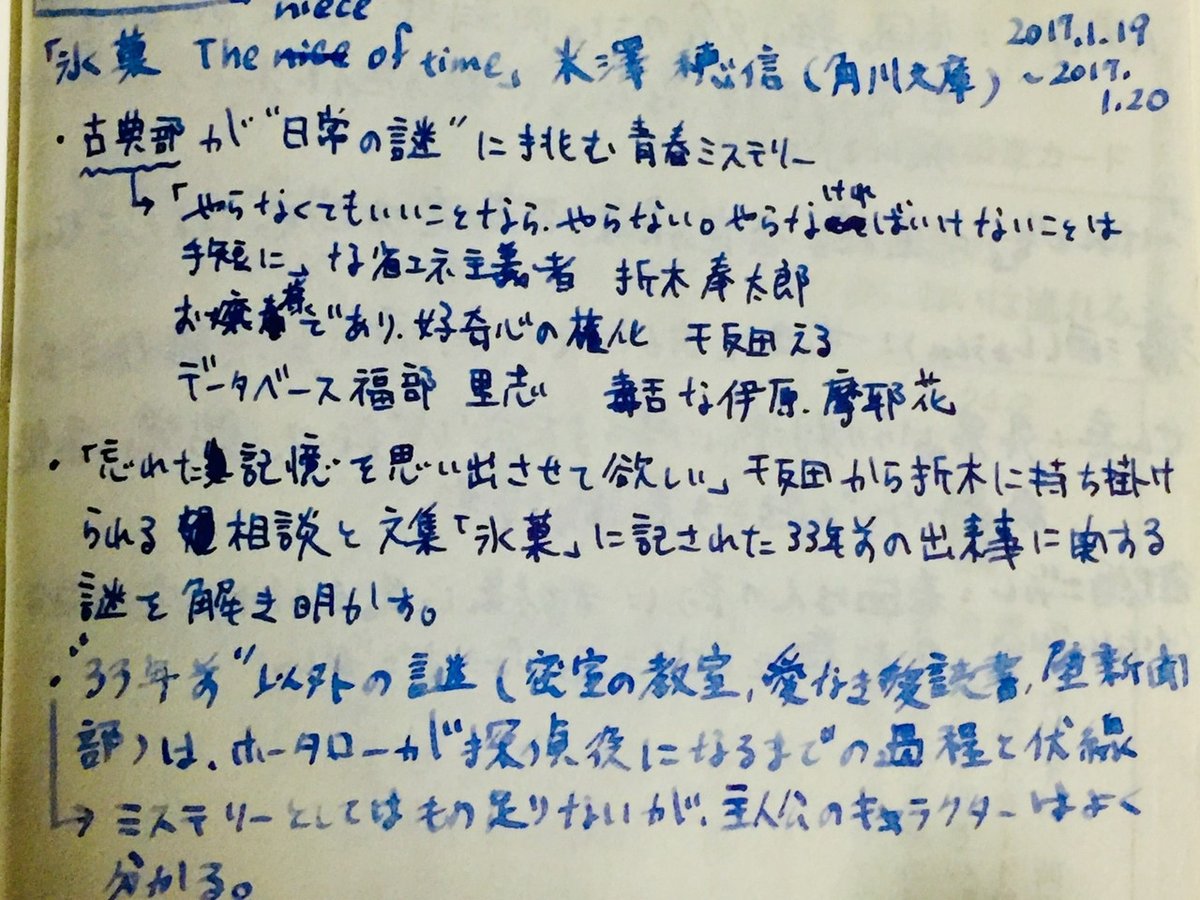 niece
「氷菓 The nice of time」 米澤 穂信 (角川文庫) 2017.1.19
~2017.
1.20
・古典部が"日常の謎"に挑む青春ミステリー
→「やらなくてもいいことなら、やらない。やらなければいけないことは
手短に」な省エネ主義者 折木奉太郎
お嬢様であり、好奇心の権化 千反田える
データベース福部 里志 毒舌な伊原 摩耶花
・「忘れた記憶を思い出させて欲しい」千反田から折木に持ち掛け
られる相談と文集「氷菓」に記された33年前の出来事に関する
謎を解き明かす。
・"33年前"以外の謎(密室の教室,愛なき愛読書,壁新聞
部)は、ホータローが"探偵役になるまで"の過程と伏線
→ミステリーとしてはもの足りないが、主人公のキャラクターはよく
分かる。